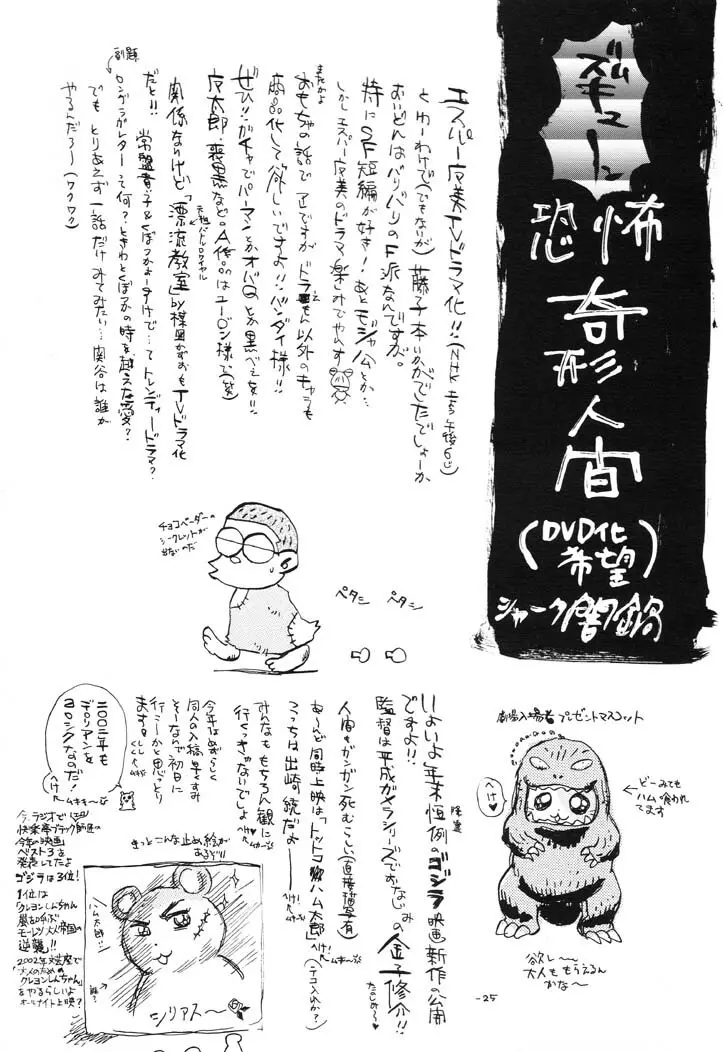 ズムキュート
恐怖
奇形
人間
(DVD化希望)
シャーク闇鍋
エスパー魔美TVドラマ化!!(NHK 土ヨ5 午後6じ)
とゆーわけで(でもないが)藤子本いかがでしたでしょーか
おいどんはバリバリのF派なんですが。
特にSF短編が好き!あとモジャ公とか…
しかしエスパー魔美のドラマ楽しみでやんす
またかよ
おもちゃの話で 恐ですが ドラえもん以外のキャラも
商品化して欲しいですよ!!バンダイ様!!
ぜひ!!ガチャでパーマンとかオバQとか黒べえを!!
魔太郎、喪黒などA作品はユージン様で(笑)
関係ないけど「漂流教室」by楳図かずおもTVドラマ化
元祖バトルロワイヤル
だと!! 常盤貴子&くぼづかよーすけで…てトレンディードラマ?
副題
ロングラブレターって何?ときわとくぼづかの時を越えた愛?
でも とりあえず一話だけみてみたい…関谷は誰が
やるんだろー(ワクワク)
チョコベーダーの
シークレットが
出ないのだ
ペタシ
ペタシ
劇場入場者プレゼントマスコット
へけ♡
どーみても
ハム喰われてます
欲し〜
大人ももらえるん
かな〜
いよいよ年末恒例のゴジラ映画新作の公開
ですよ!!
監督は平成ガメラシリーズでおなじみの金子修介!!
たのしみ〜♥
人間もガンガン死むらしい(直接描写有)
あーんど同時上映は「とっとこハム太郎」
へけ!
(テコ入れか?)
こっちは出崎 統だよ———
みんなももちろん観に
行くっきゃないでしょ
へけ♥
今年はめずらしく
同人の入稿早くすみ
そーなんで初日に
行こーかと思っとり
ます。
二〇〇二年も
デロリアンを
ヨロシクなのだ!
へけ
ムキキ〜
今、ラジオで
快楽亭ブラック師匠の
今年の映画
ベスト3を
発表してたよ
ゴジラは3位!
1位は
クレヨンしんちゃん
嵐を呼ぶ
モーレツ大人帝国の
逆襲!!
2002年文芸座で
「大人のための
クレヨンしんちゃん」
をやるらしいよ
オールナイト上映?
きっとこんな止め絵が
あるぞ!!
ハム太郎…
誰?
シリアス〜
-25